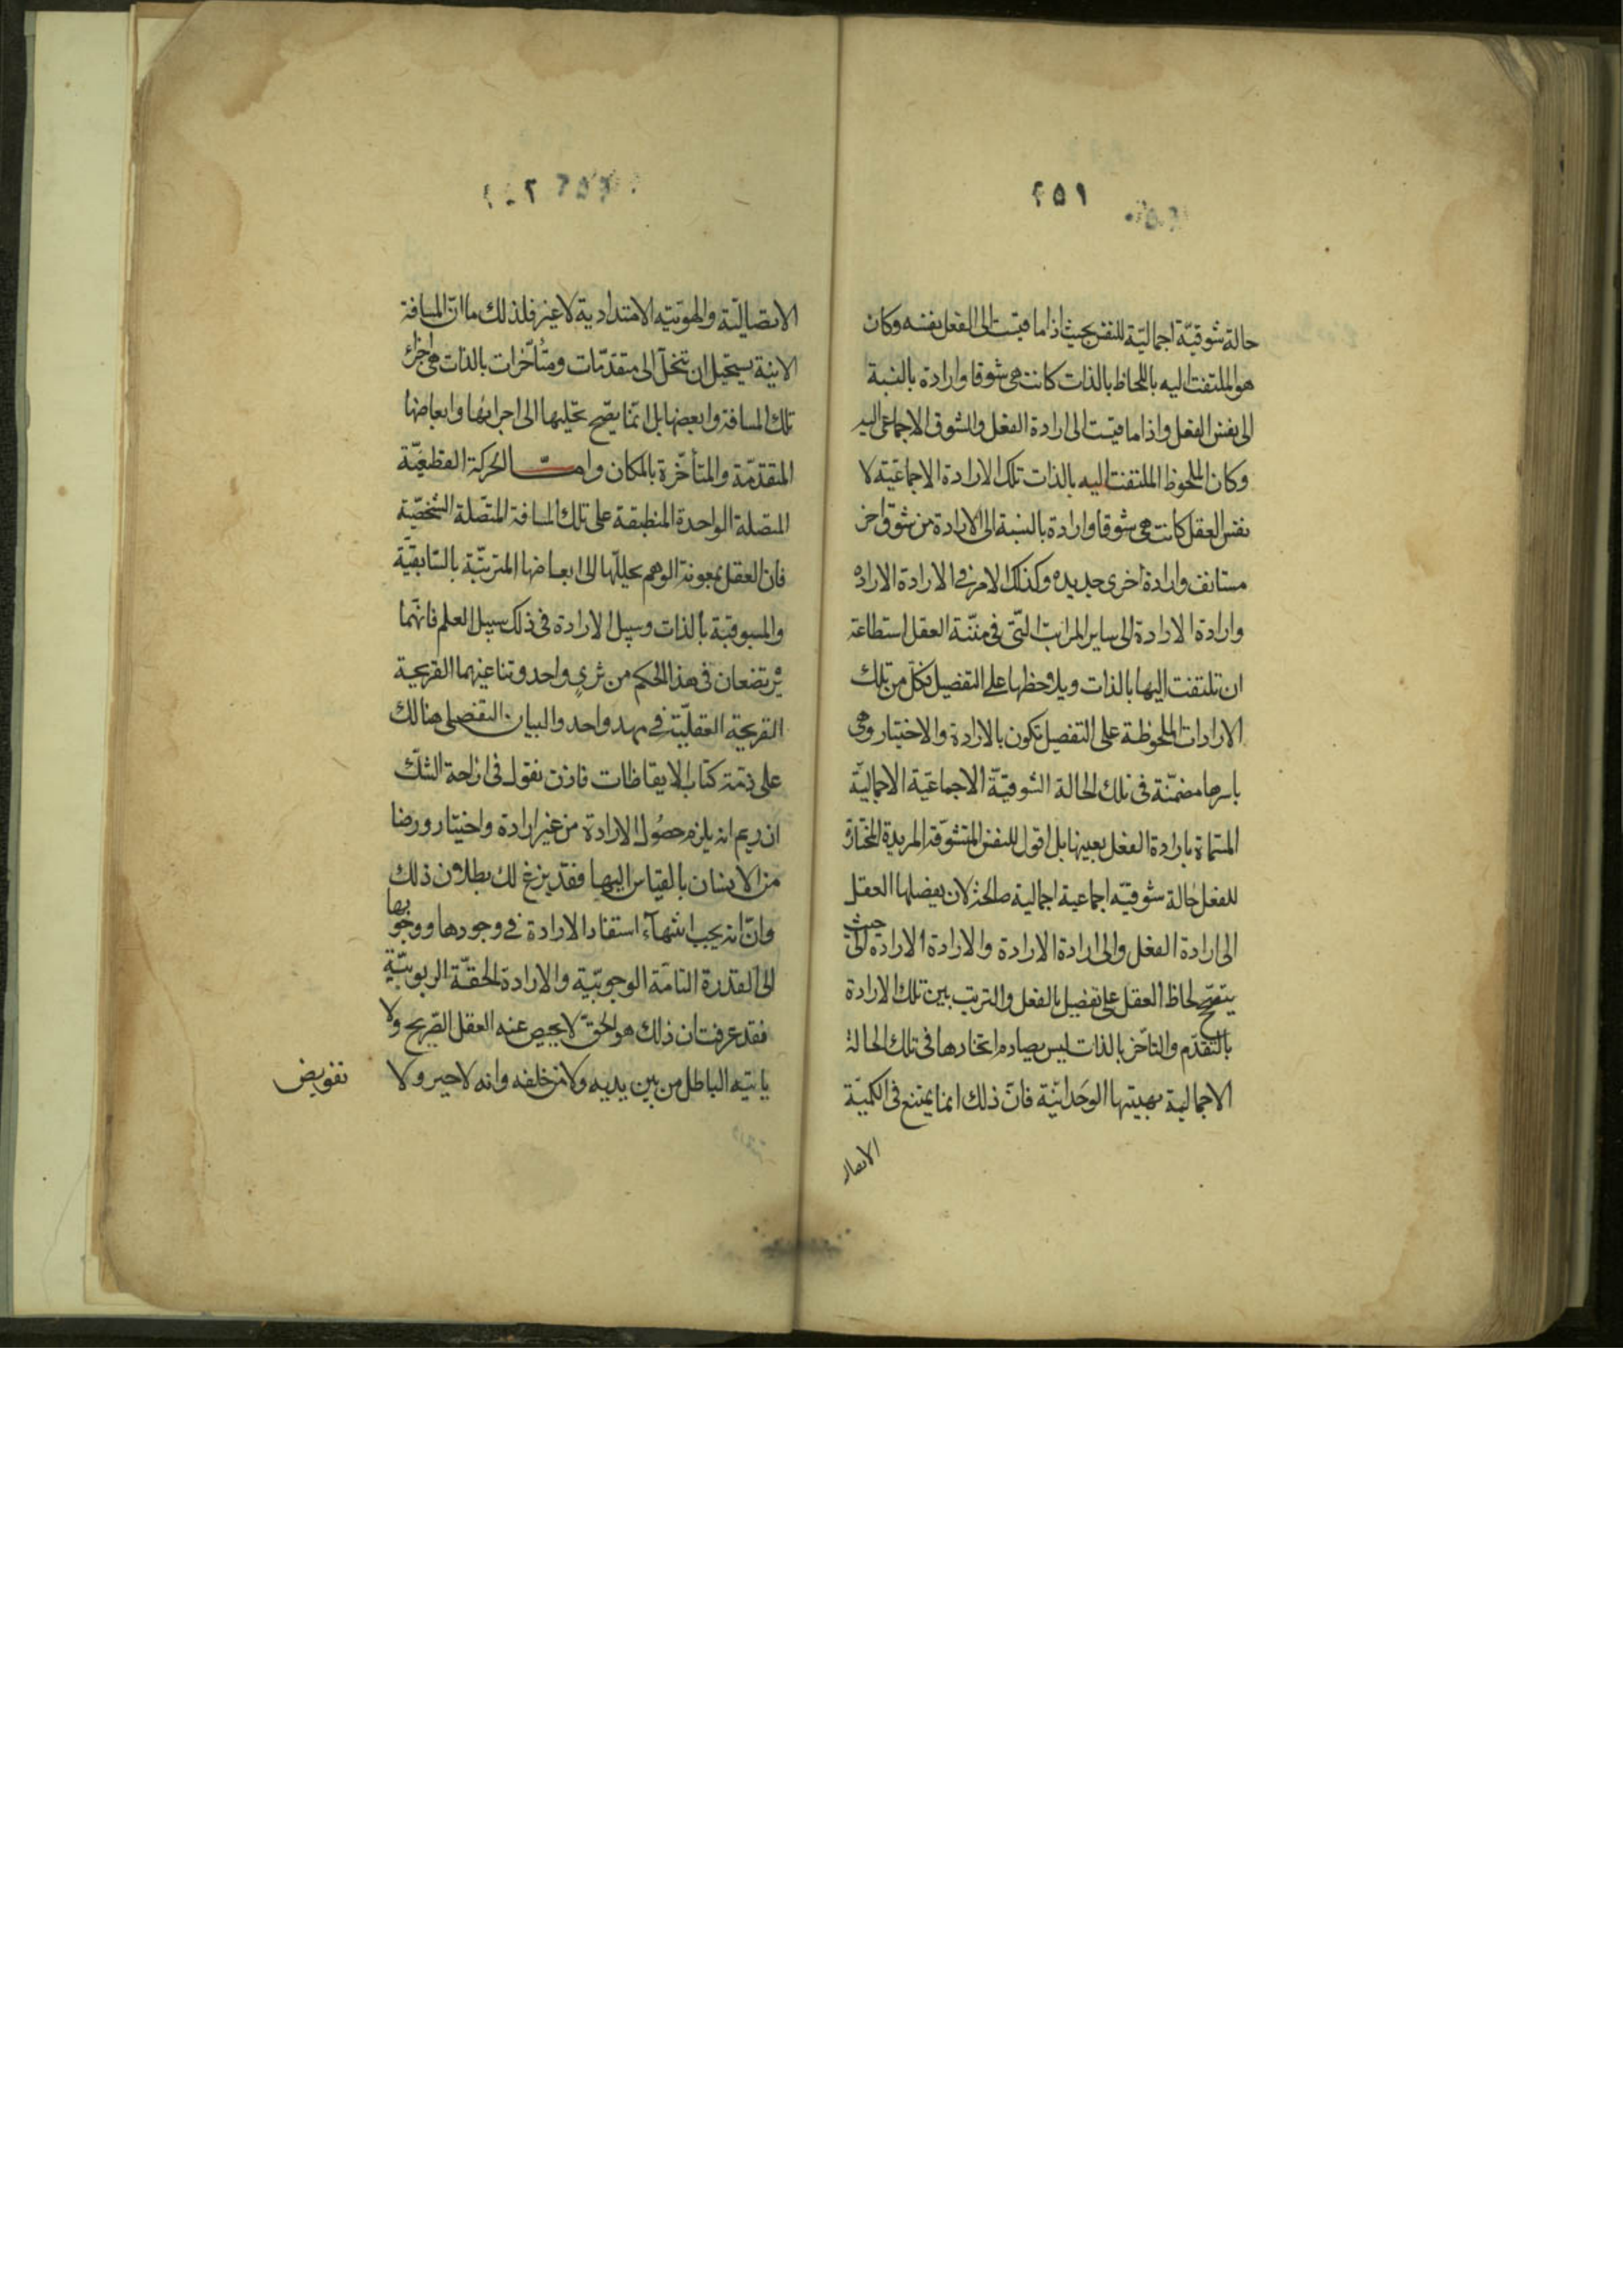 ٢٥١
حالة شوقيّة اجماليّة للنفس بحيث اذا ما قيست الى الفعل نفسه وكان
هو الملتفت اليه باللحاظ بالذات كانت هى شوقا وارادة بالنسبة
الى نفس الفعل واذا ما قيست الى ارادة الفعل والشوق الاجماعى اليه
وكان الملحوظ الملتفت اليه بالذات تلك الارادة الاجماعيّة لا
نفس العقل كانت هى شوقا وارادة بالنسبة الى الارادة من شوق اخر
مستانف وارادة اخرى جديده وكذلك الامر فى الارادة الاراده
وارادة الارادة الى ساير المراتب التّى فى منّنة العقل استطاعة
ان تلتفت اليها بالذات ويلاحظها على التفصيل فكلّ من تلك
الارادات الملحوظة على التفصيل تكون بالارادة والاختيار وهى
باسرها مضمّنة فى تلك الحالة الشوقيّة الاجماعيّة الاجماليّة
المسّماة بارادة الفعل بعينها بل اقول للنفس المتشوّقة المريدة المختارة
للفعل حالة شوقيّه اجماعية اجمالية صالحة لان يفصلها العقل
الى ارادة الفعل والى ارادة الارادة والارادة الارادة الى حيث
يتصحح لحاظ العقل على تفصيل بالفعل والترتب بين تلك الارادة
بالتقدّم والتاخّر بالذات ليس يصادم اتحادها فى تلك الحالة
الاجمالية بهيتها الوَحَدانيّة فانّ ذلك انما يمتنع فى الكميّة
الاتصالـ
الاتصاليّة والهوّتيّه الامتدادية لا غير فلذلك ما انّ المسافة
الاينيّة يستحيل ان تنحلّ الى متقدّمات ومتُأخّرات بالذات هى اجزاء
تلك المسافة وابعضها بل انّما يصّح تحليلها الى اجزائها وابعاضها
المتقدّمة والمتأخّرة بالمكان وامّا الحركة القطعيّة
المتصّلة الواحدة المنطبقة على تلك المسافة المتصّلة الشخصيّة
فان العقل بمعونة الوهم يحليلّها الى ابعاضها المترتبّة بالسّابقيّة
والمسبوقيّة بالذات وسبيل الارادة فى ذلك سبيل العلم فانّهما
يرتضعان فى هذا الحكم من ثدي واحد وتناغيهما القريحية
القريحة العقليّة فى مهد واحد والبيان التفصيلى هنالك
على ذمّة كتاب الايقاظات فاذن نقول فى ازاحة الشكّ
ان ريم انه يلزم حصُول الارادة من غير ارادة واختيار ورضا
من الانسان بالقياس اليها فقد بزغ لك بطلان ذلك
وانّ انه يجب انتهآء استفاد الارادة فى وجودها ووجوبها
الى القدرة التامّة الوجوبيّة والارادة الحقّة الربوبيّة
فقد عرفت ان ذلك هو الحقّ لا يحيص عنه العقل الصّريح ولا
ياتيه الباطل من بين يديه ولا من خلفه وانه لا جبر ولا
تفويض